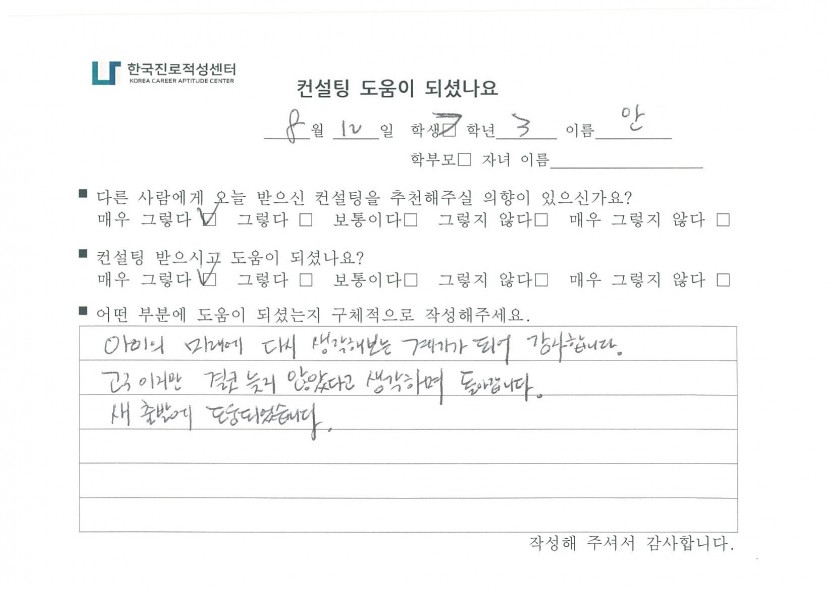 한국진로적성센터
KOREA CAREER APTITUDE CENTER
컨설팅 도움이 되셨나요
8월 12일 학생☑ 학년 3 이름 안
학부모□ 자녀 이름
■ 다른 사람에게 오늘 받으신 컨설팅을 추천해주실 의향이 있으신가요?
매우 그렇다 ☑ 그렇다 □ 보통이다□ 그렇지 않다□ 매우 그렇지 않다 □
■ 컨설팅 받으시고 도움이 되셨나요?
매우 그렇다 ☑ 그렇다 □ 보통이다□ 그렇지 않다□ 매우 그렇지 않다 □
■ 어떤 부분에 도움이 되셨는지 구체적으로 작성해주세요.
아이의 미래에 다시 생각해보는 계기가 되어 감사합니다.
고3 이지만 결코 늦지 않았다고 생각하며 돌아갑니다.
새 출발에 도움되었습니다.
작성해 주셔서 감사합니다.